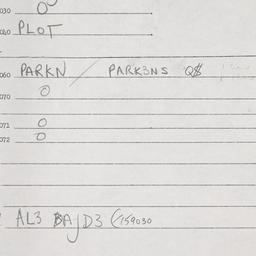 030 0
040 PLOT
060 PARKN / PARK3NS Q$
070 0
071 0
072 0
AL3 BAJD3 (159030